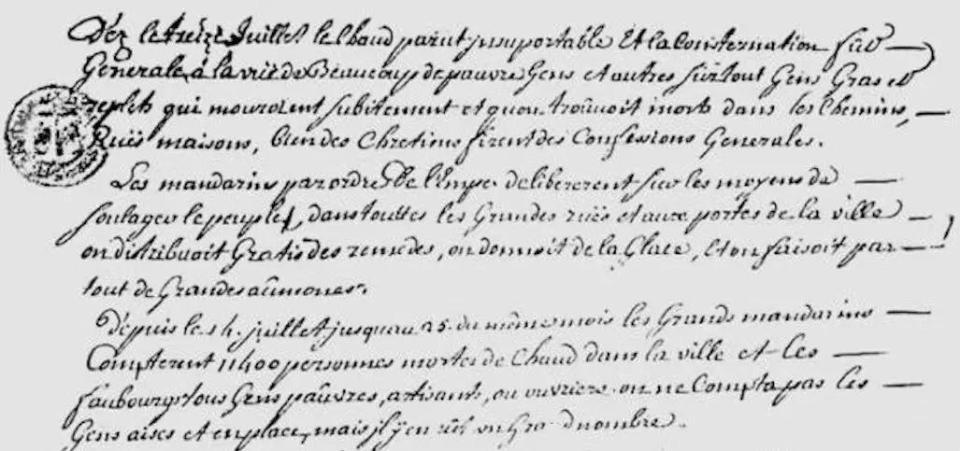 Dez le treize Juillet le Chaud parut jnsuportable Et la Consternation fut
Generale, à la vüe de Beaucoup de pauvre Gens et autres sur tout Gens Gras et
replets qui mouroient subitement et qu'on trouvoit morts dans les Chemins,
Rües maisons, bien des Chretiens firent des Confessions Generales.
Les mandarins par ordre de l'Empr. delibererent sur les moyens de
soulager le peuple, dans touttes les Grandes rües et aux portes de la ville
on distribuoit Gratis des remedes, on donnoit de la Glace, et on faisoit par
tout de Grandes aûmones.
Depuis le 14. juillet jusqu'au 25. du même mois les Grands mandarins
Compterent 11400 personnes mortes de Chaud dans la ville et les
faubourgs tous Gens pauvres, artisants, ou ouvriers on ne Compta pas les
Gens aises et en place, mais jl y en eût un Grand nombre.